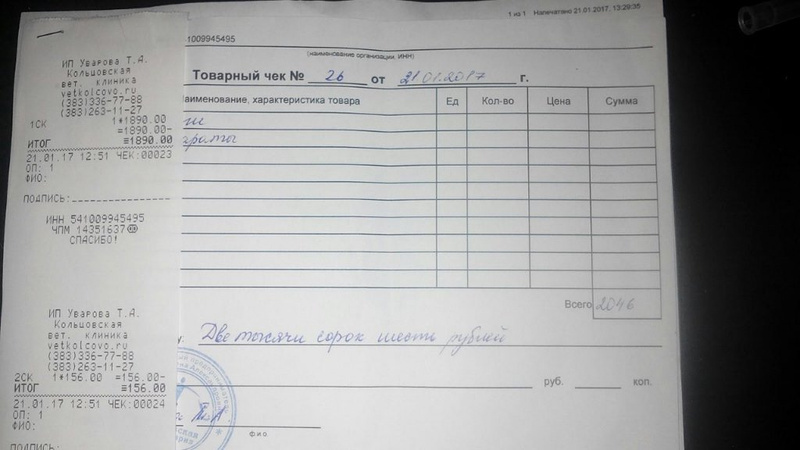 1 из 1 Напечатано 21.01.2017, 13:29:35
1009945495
(наименование организации, ИНН)
Товарный чек № 26 от 21.01.2017 г.
аименование, характеристика товара Ед Кол-во Цена Сумма
Всего 2046
Две тысячи сорок шесть рублей
руб. коп.
ф.и.о.
ИП Уварова Т.А.
Кольцовская
вет. клиника
vetkolcovo.ru
(383)336-77-88
(383)263-11-27
1СК 1*1890.00
=1890.00-
ИТОГ ≡1890.00
21.01.17 12:51 ЧЕК:00023
ОП: 1
ФИО:
ПОДПИСЬ:
ИНН 541009945495
ЧПМ 14351637
СПАСИБО!
ИП Уварова Т.А.
Кольцовская
вет. клиника
vetkolcovo.ru
(383)336-77-88
(383)263-11-27
2СК 1*156.00 =156.00-
ИТОГ ≡156.00
21.01.17 12:51 ЧЕК:00024
ОП: 1
ФИО:
ПОДПИСЬ: